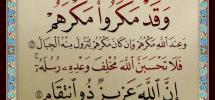 وَقَدْ مَكَرُوا۟ مَكْرَهُمْ
وَعِندَ ٱللَّهِ مَكْرُهُمْ وَإِن كَانَ مَكْرُهُمْ لِتَزُولَ مِنْهُ ٱلْجِبَالُ
فَلَا تَحْسَبَنَّ ٱللَّهَ مُخْلِفَ وَعْدِهِۦ رُسُلَهُۥٓ ۗ
إِنَّ ٱللَّهَ عَزِيزٌ ذُو ٱنتِقَامٍ